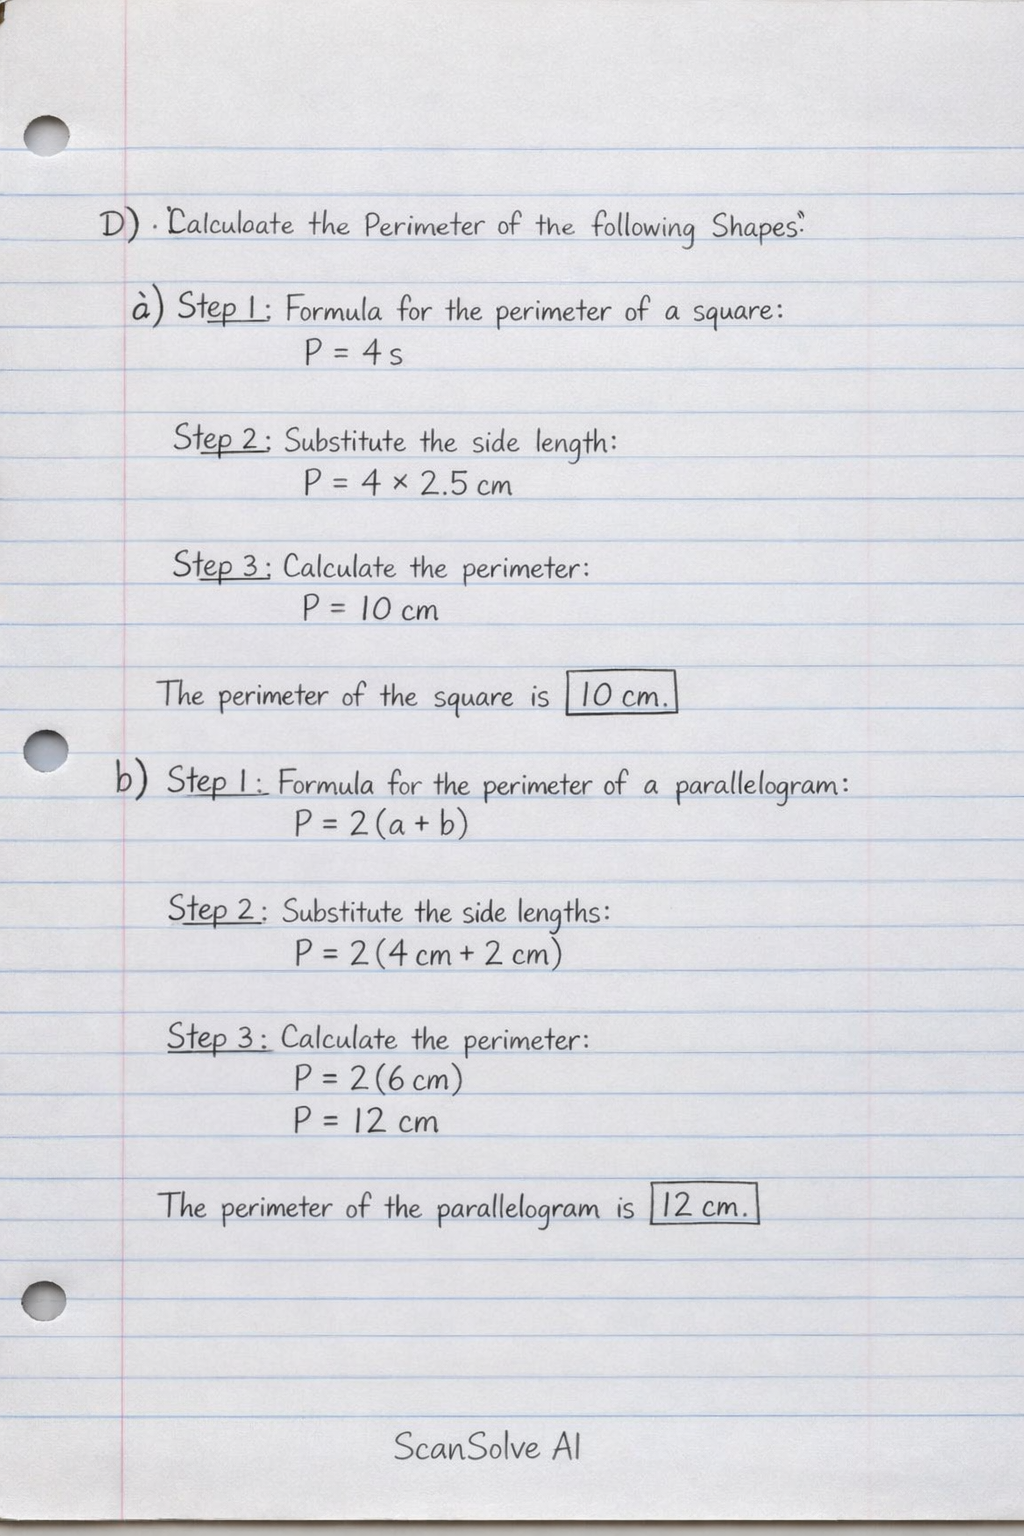 D) . "Calculoate the Perimeter of the following Shapes."
à) Step 1: Formula for the perimeter of a square:
P = 4 s
Step 2: Substitute the side length:
P = 4 × 2.5 cm
Step 3: Calculate the perimeter:
P = 10 cm
The perimeter of the square is 10 cm.
b) Step 1: Formula for the perimeter of a parallelogram:
P = 2(a + b)
Step 2: Substitute the side lengths:
P = 2(4 cm + 2 cm)
Step 3: Calculate the perimeter:
P = 2(6 cm)
P = 12 cm
The perimeter of the parallelogram is 12 cm.
ScanSolve AI